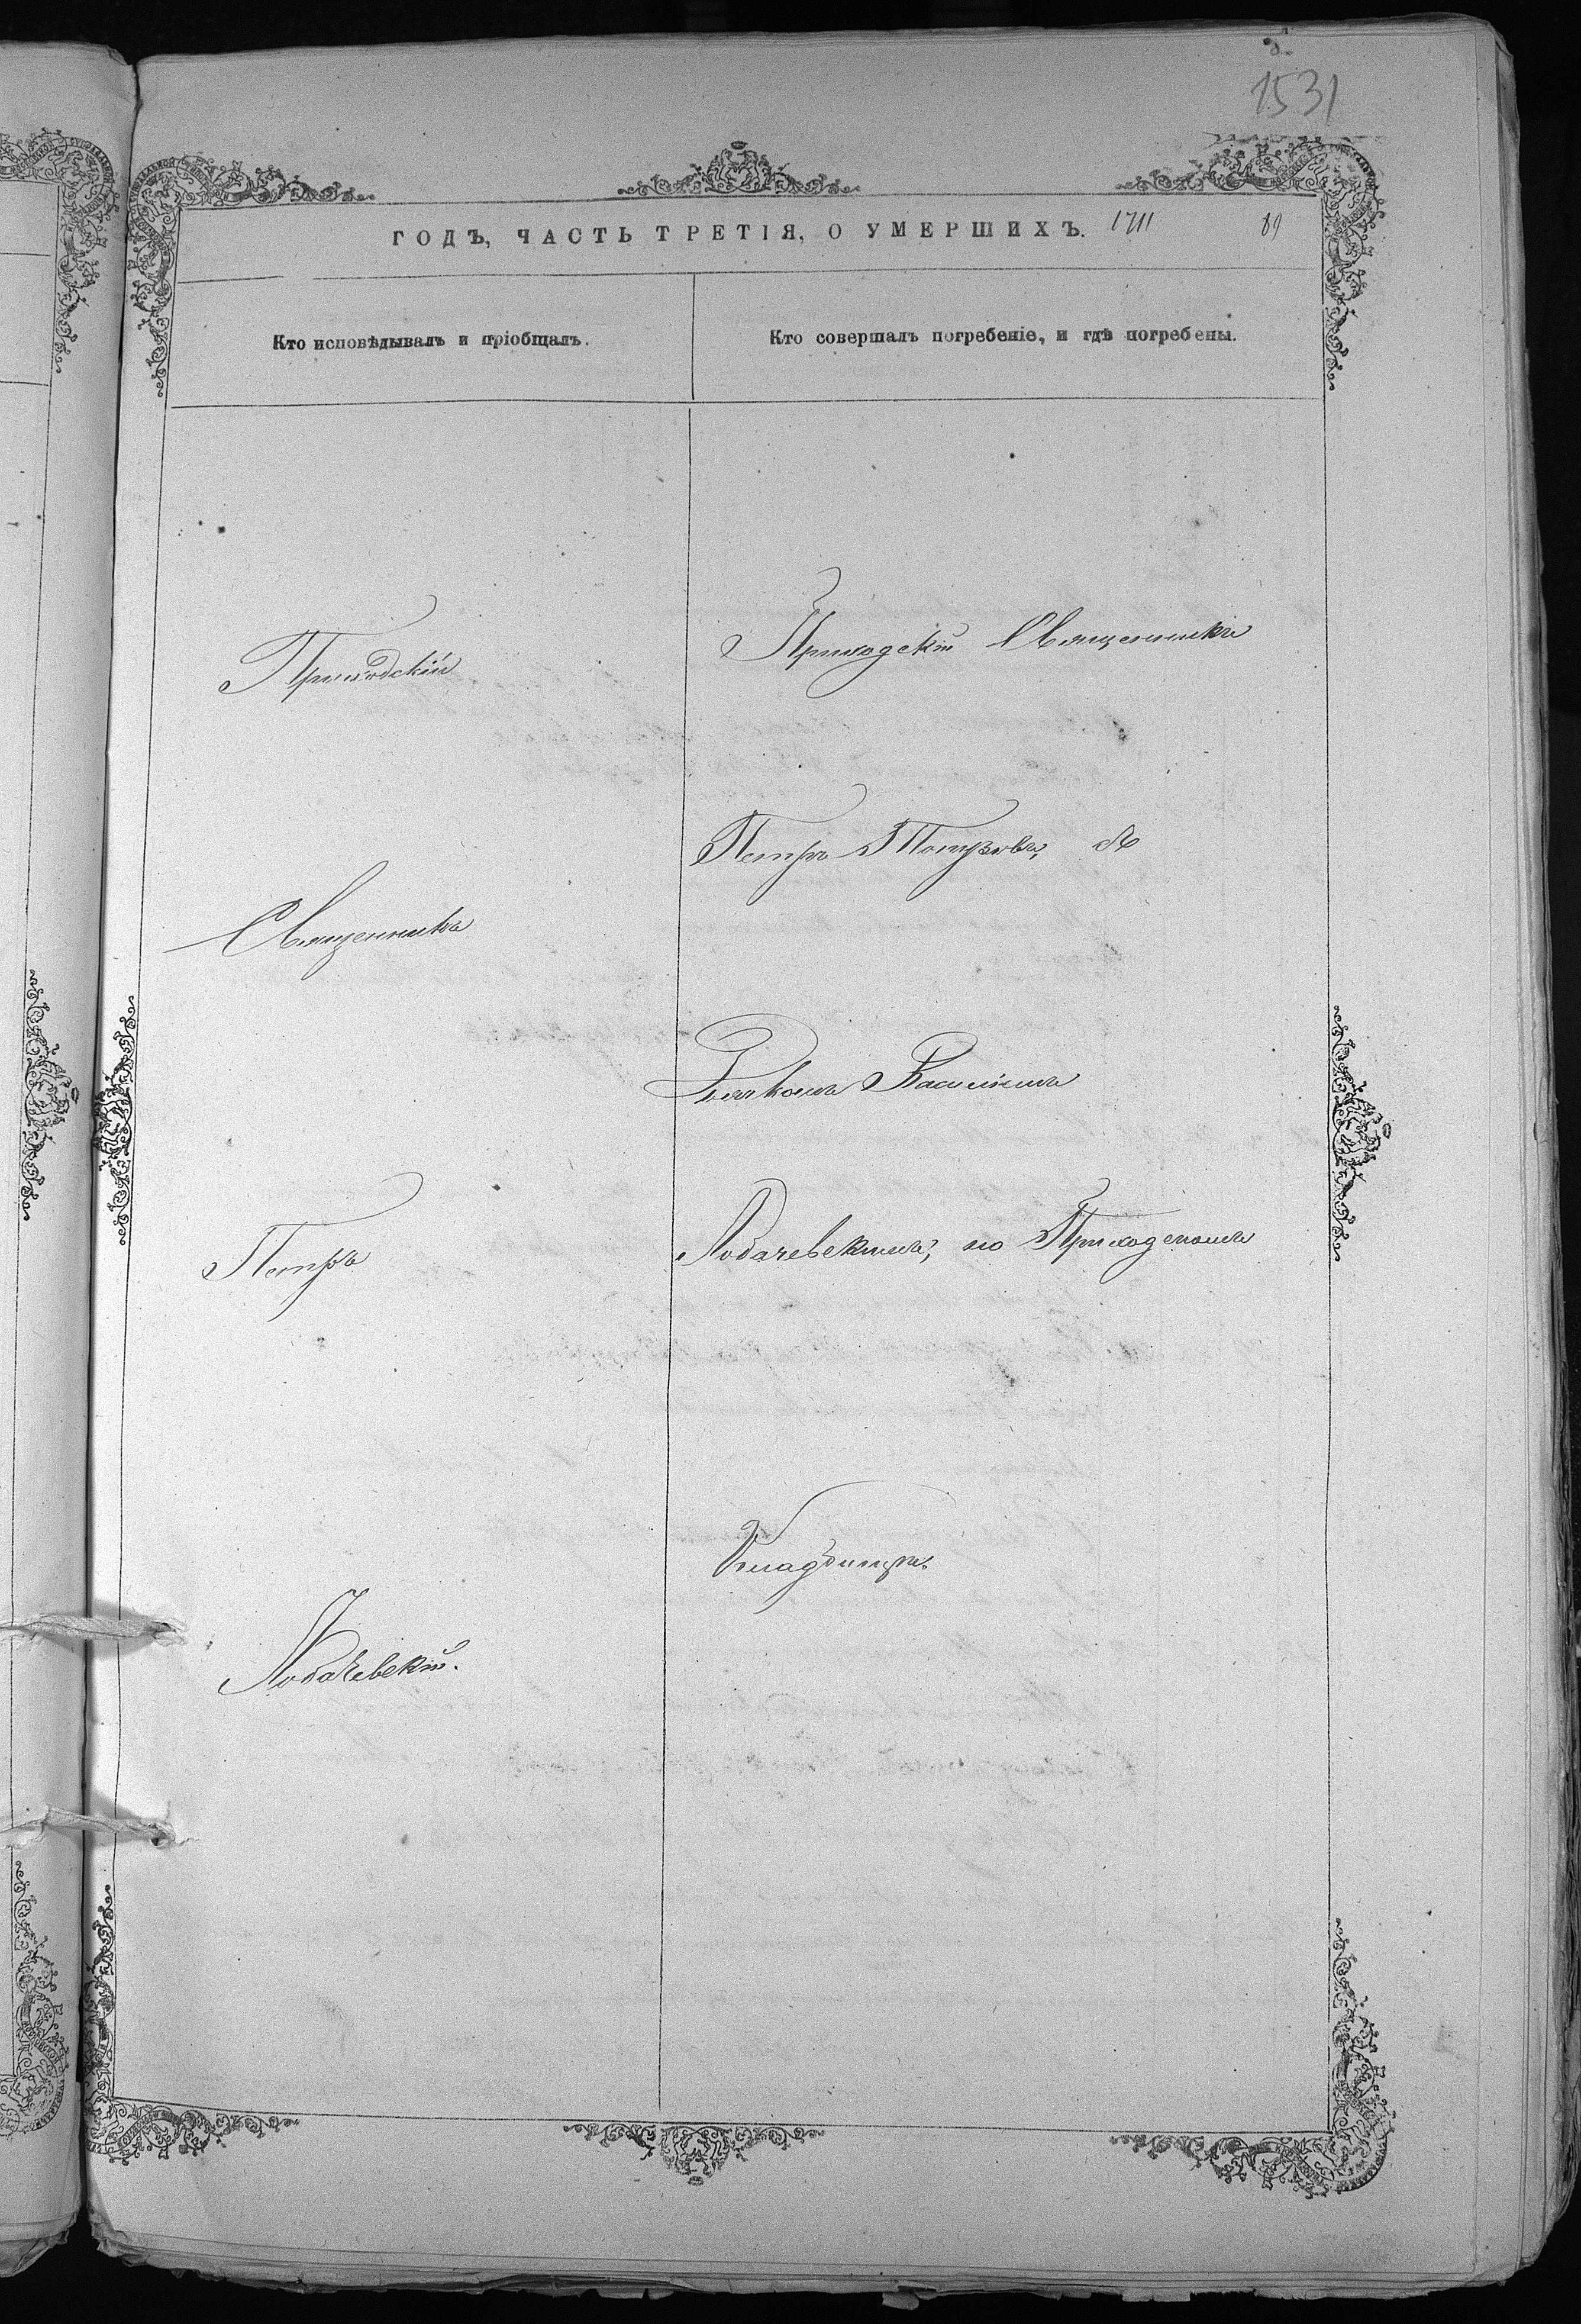 1531
ГОДЪ, ЧАСТЬ ТРЕТІЯ, О УМЕРШИХЪ. 1711 89
Кто исповѣдывалъ и пріобщалъ.
Приходскій
Священникъ
Петръ
Лобачевскій.
Кто совершалъ погребеніе, и гдѣ погребены.
Приходскій Священникъ
Петръ съ
Дьякомъ Василіемъ
Лобачевскимъ, на Приходскомъ
Кладбищѣ.